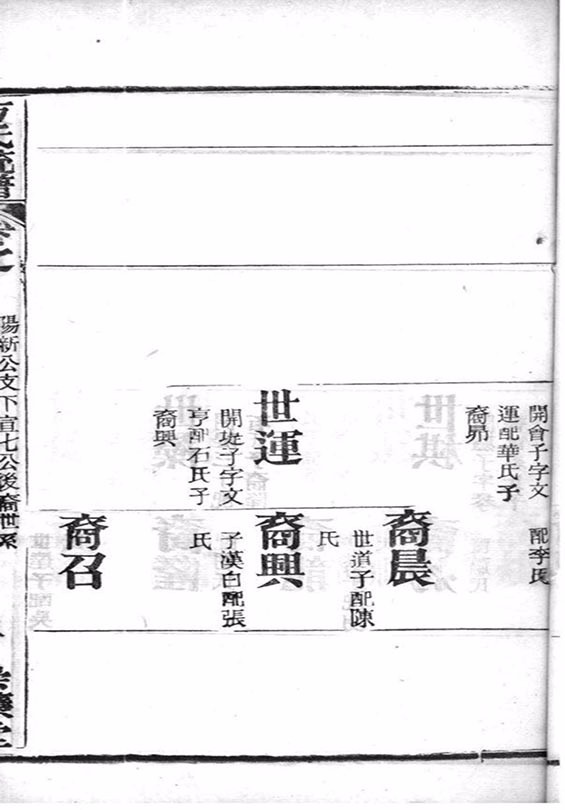 開會子字文
運配華氏子
裔昴
世運
開堤子字文
亨配石氏子
裔興
配李氏
裔晨
世道子配陳
氏
裔興
子漢白配張
氏
裔召
氏統譜
卷之
陽新公支下直七公後裔世系